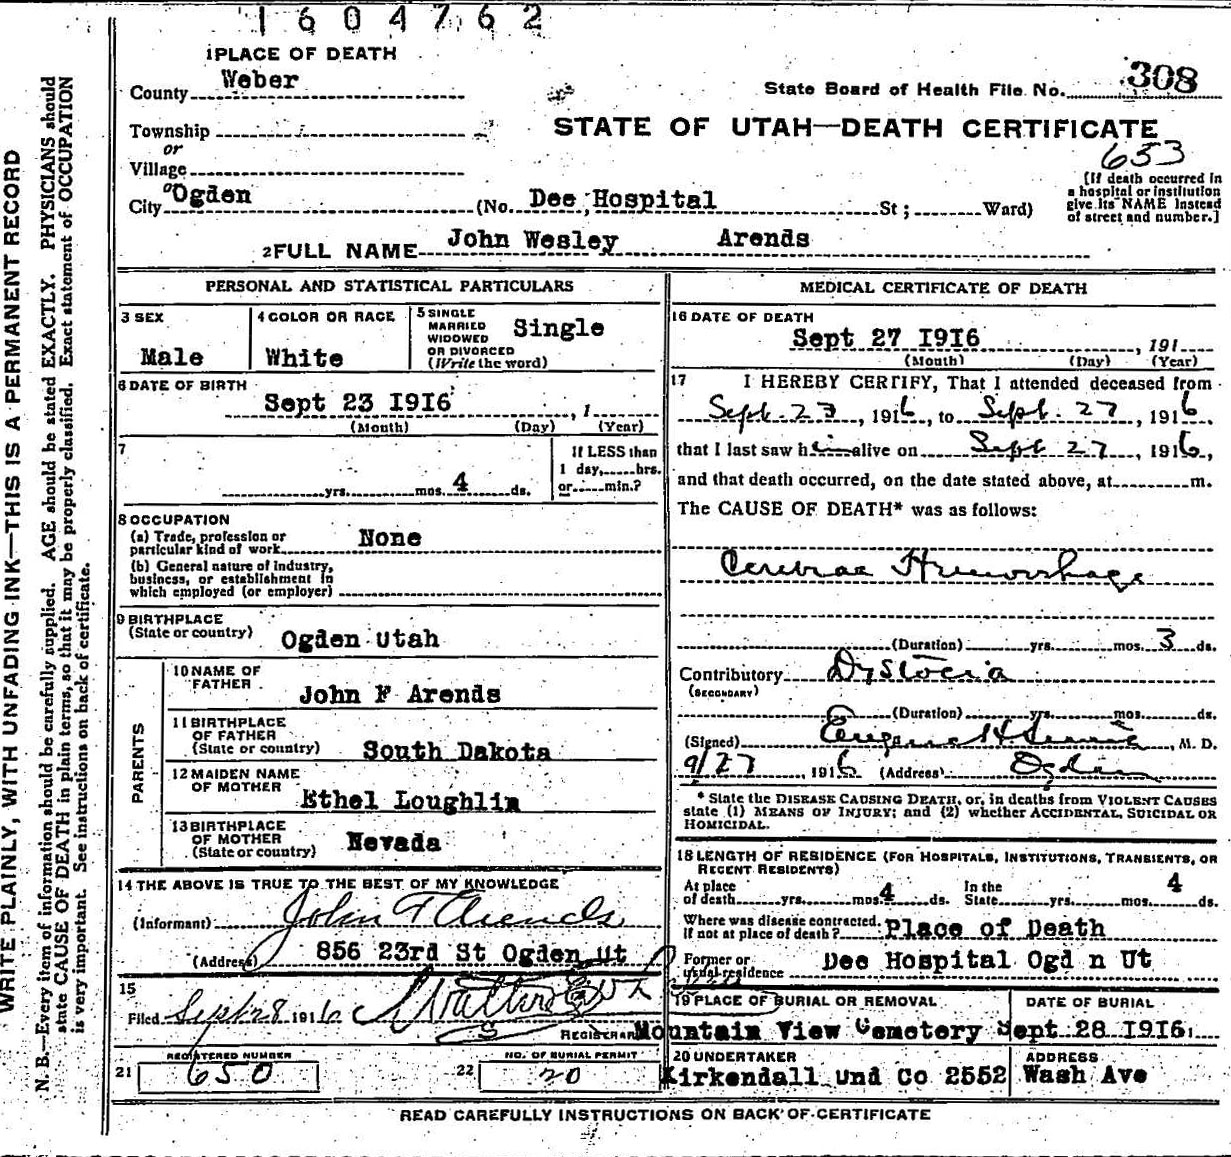 1604762
1 PLACE OF DEATH
County Weber
State Board of Health File No. 308
Township
or
Village
STATE OF UTAH—DEATH CERTIFICATE
653
or
City Ogden (No. Dee Hospital St; Ward)
[If death occurred in
a hospital or institution
give its NAME instead
of street and number.]
2 FULL NAME John Wesley Arends
PERSONAL AND STATISTICAL PARTICULARS
3 SEX
Male
4 COLOR OR RACE
White
5 SINGLE
MARRIED
WIDOWED
OR DIVORCED
(Write the word)
Single
6 DATE OF BIRTH
Sept 23 1916 , 1
(Month) (Day) (Year)
7
yrs. mos. 4 ds.
If LESS than
1 day, hrs.
or min.?
8 OCCUPATION
(a) Trade, profession or
particular kind of work None
(b) General nature of industry,
business, or establishment in
which employed (or employer)
9 BIRTHPLACE
(State or country) Ogden Utah
PARENTS
10 NAME OF
FATHER
John F Arends
11 BIRTHPLACE
OF FATHER
(State or country) South Dakota
12 MAIDEN NAME
OF MOTHER
Ethel Loughlin
13 BIRTHPLACE
OF MOTHER
(State or country) Nevada
14 THE ABOVE IS TRUE TO THE BEST OF MY KNOWLEDGE
(Informant) John F Arends
(Address) 856 23rd St Ogden Ut
15
Filed Sept 28 1916
REGISTRAR
21 REGISTERED NUMBER
650
22 NO. OF BURIAL PERMIT
20
MEDICAL CERTIFICATE OF DEATH
16 DATE OF DEATH
Sept 27 1916 , 191
(Month) (Day) (Year)
17 I HEREBY CERTIFY, That I attended deceased from
Sept. 23, 1916, to Sept. 27, 1916
that I last saw him alive on Sept 27, 1916,
and that death occurred, on the date stated above, at m.
The CAUSE OF DEATH* was as follows:
Cerebral Hemorrhage
(Duration) yrs. mos. 3 ds.
Contributory Dystocia
(SECONDARY)
(Duration) yrs. mos. ds.
(Signed) Eugene H , M. D.
9/27, 1916 (Address) Ogden
* State the DISEASE CAUSING DEATH, or, in deaths from VIOLENT CAUSES
state (1) MEANS OF INJURY; and (2) whether ACCIDENTAL, SUICIDAL OR
HOMICIDAL.
18 LENGTH OF RESIDENCE (FOR HOSPITALS, INSTITUTIONS, TRANSIENTS, OR
RECENT RESIDENTS)
At place
of death yrs. mos. 4 ds.
In the
State yrs. mos. 4 ds.
Where was disease contracted,
if not at place of death? Place of Death
Former or
usual residence Dee Hospital Ogd n Ut
19 PLACE OF BURIAL OR REMOVAL
Mountain View Cemetery
DATE OF BURIAL
Sept 28 1916
20 UNDERTAKER
Kirkendall Und Co 2552
ADDRESS
Wash Ave
READ CAREFULLY INSTRUCTIONS ON BACK OF CERTIFICATE
WRITE PLAINLY, WITH UNFADING INK—THIS IS A PERMANENT RECORD
N. B.—Every item of information should be carefully supplied. AGE should be stated EXACTLY. PHYSICIANS should
state CAUSE OF DEATH in plain terms, so that it may be properly classified. Exact statement of OCCUPATION
is very important. See instructions on back of certificate.